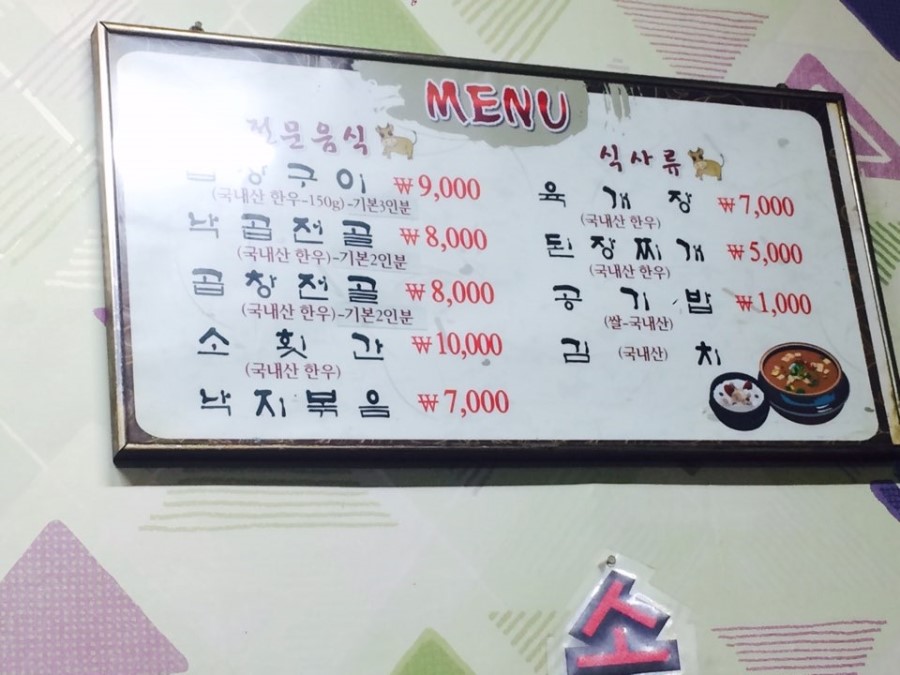 MENU
전문음식
곱창구이 ₩9,000
(국내산 한우-150g)-기본3인분
낙곱전골 ₩8,000
(국내산 한우)-기본2인분
곱창전골 ₩8,000
(국내산 한우)-기본2인분
소 횟 간 ₩10,000
(국내산 한우)
낙지볶음 ₩7,000
식사류
육 개 장 ₩7,000
(국내산 한우)
된장찌개 ₩5,000
(국내산 한우)
공 기 밥 ₩1,000
(쌀-국내산)
김 (국내산) 치
소